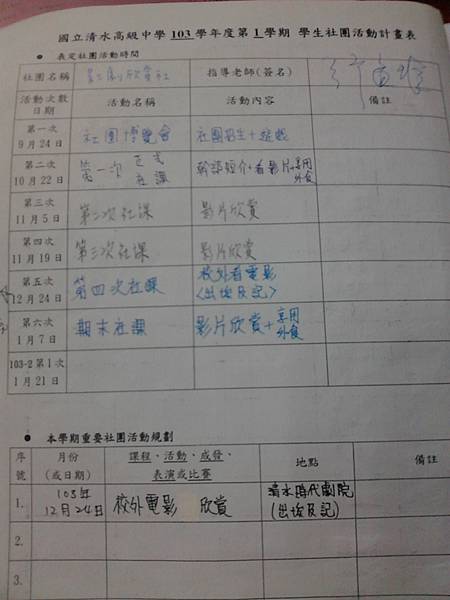 國立清水高級中學 103 學年度第 1 學期 學生社團活動計畫表
● 表定社團活動時間
社團名稱 影劇欣賞社 指導老師(簽名)
活動次數 活動名稱 活動內容 備註
日期
第一次 社團博覽會 社團招生+遊戲
9月24日
第二次 第一次正式社課 幹部簡介+看影片+享用外食
10月22日
第三次 第二次社課 影片欣賞
11月5日
第四次 第三次社課 影片欣賞
11月19日
第五次 第四次社課 校外看電影
12月24日 <出埃及記>
第六次 期末社課 影片欣賞+享用外食
1月7日
103-2第1次
1月21日
● 本學期重要社團活動規劃
序號 月份(或日期) 課程、活動、成發、表演或比賽 地點 備註
1. 103年12月24日 校外電影 欣賞 清水時代戲院(出埃及記)
2.
3.